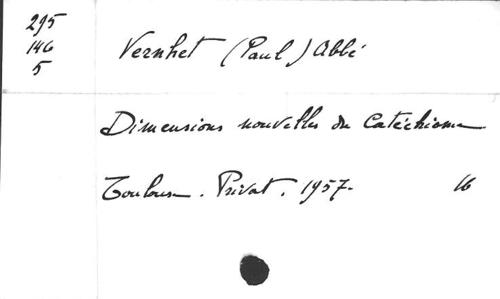 295
146
5
Vernhet (Paul) Abbé
Dimensions nouvelles du Catéchisme
Toulouse. Privat. 1957-
16